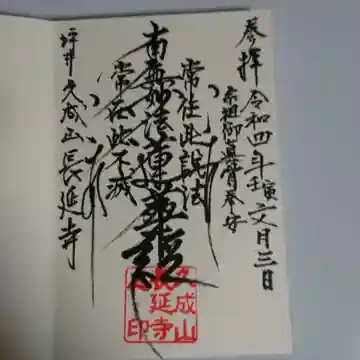 奉拝 令和四年壬寅文月三日
宗祖御真骨奉安
常住此説法
南無妙法蓮華経
常在此不滅
坪井 久成山長延寺
久成山
長延寺
印